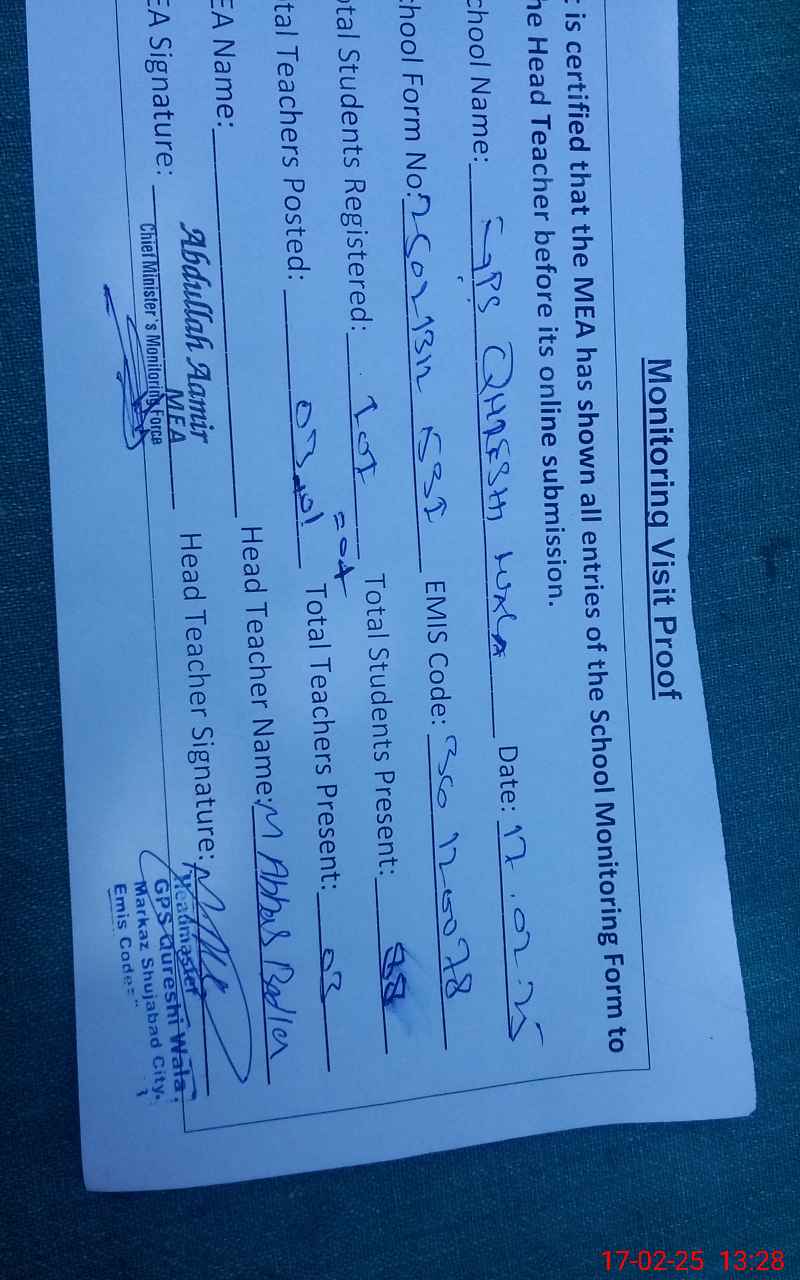 Monitoring Visit Proof
t is certified that the MEA has shown all entries of the School Monitoring Form to
he Head Teacher before its online submission.
chool Name: GPS QURESHI WALA Date: 17.02.25
chool Form No: EMIS Code:
otal Students Registered: 107 Total Students Present: 88
tal Teachers Posted: 03+01 = 04 Total Teachers Present: 03
EA Name: Abdullah Aamir Head Teacher Name: M Abbas
MEA
EA Signature: Head Teacher Signature:
Chief Minister's Monitoring Force
Headmaster
GPS Qureshi Wala,
Markaz Shujabad City.
Emis Code="
17-02-25 13:28